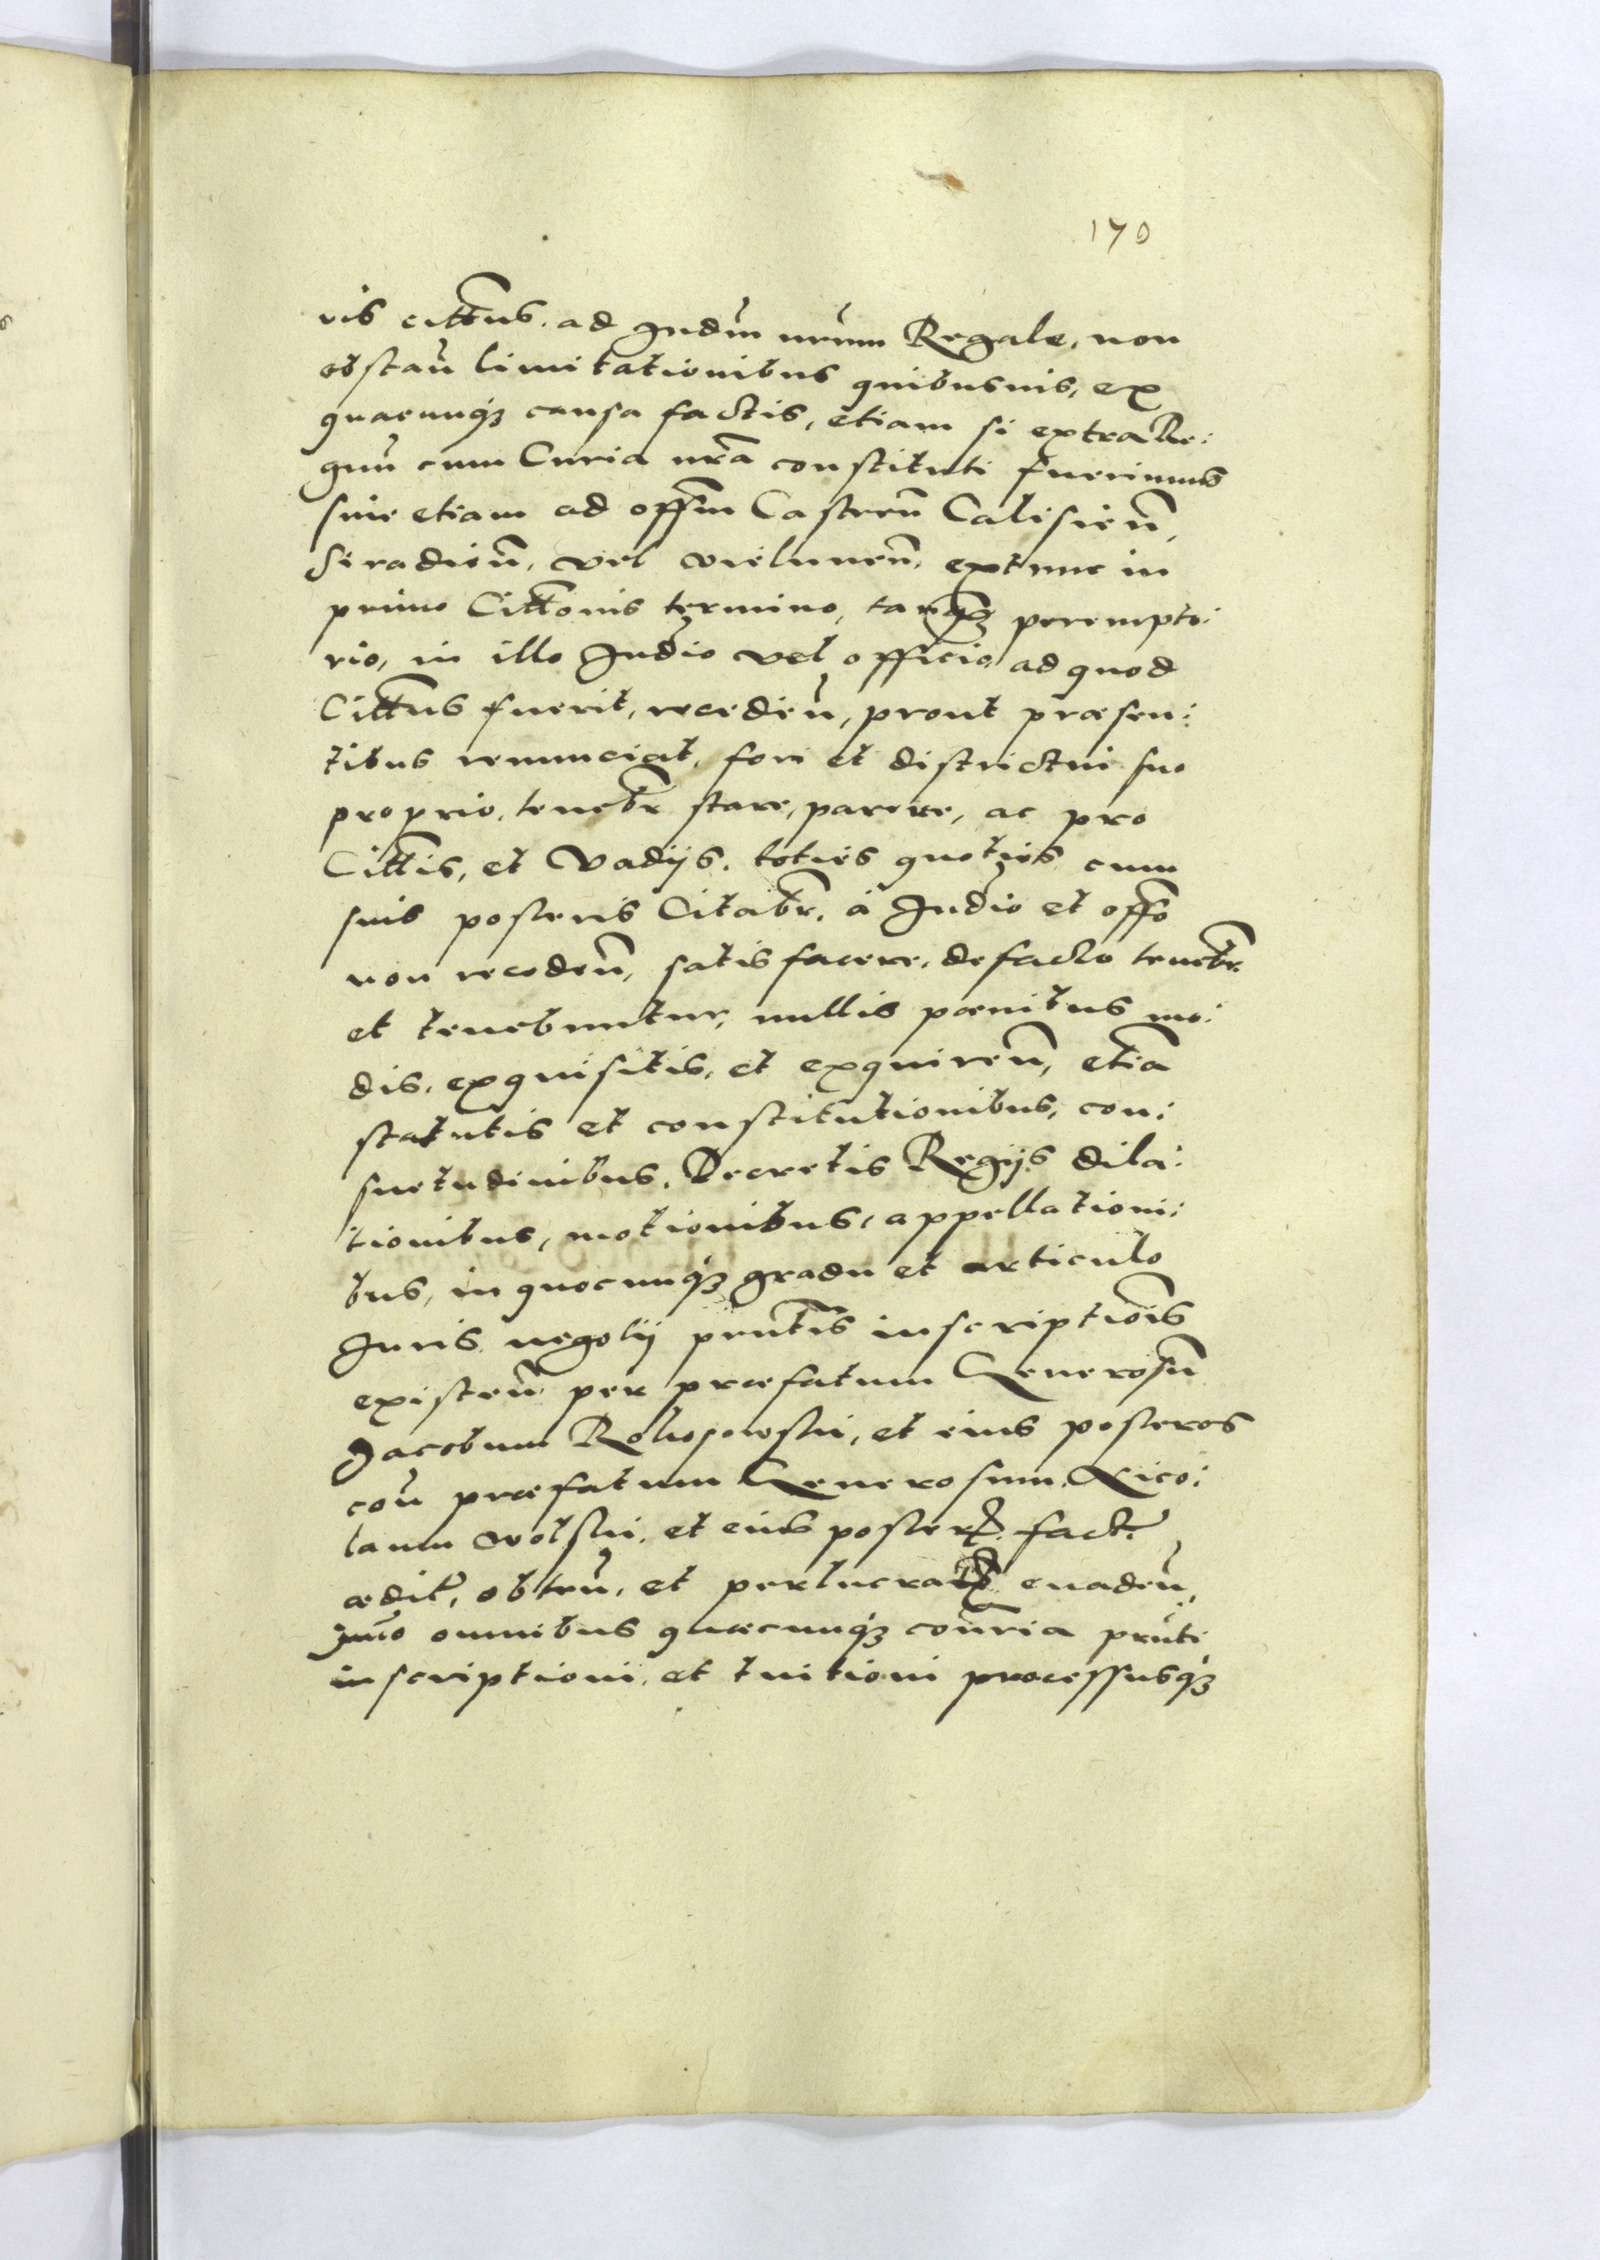 170
ris cittus. ad Judm nrum Regale, non
obstan̄ limitationibus quibusuis, ex
quacunq́ȝ causa factis, etiam si extra Re:
gnū cum Curia nrā constituti fuerimus
siue etiam ad offm̄ Castren̄ Calisien̄,
Siradien̄, vel vielunen̄, extunc in
primo Cittōnis termino, tanq̄ȝ perempto:
rio, in illo Judīo vel officio ad quod
Cittus fuerit, receden̄, prout præsen:
tibus renunciat, fori et districtui suo
proprio, tenebr̄ stare, parere, ac pro
Cittis, et Vadijs, toties quoties cum
suis posteris Citabr̄, à Judīo et offō
non receden̄, satisfacere, de facto tenebr̄
et tenebuntur, nullis pœnitus mo:
dis, exquisitis, et exquiren̄, etiā
statutis et constitutionibus, con:
suetudinibus, Decretis Regijs dila:
tionibus, motionibus, appellationi:
bus, in quocunq́ȝ gradu et articulo
Juris negotij prn̄tis inscriptiōis
existen̄ per præfatum Generosū
Jacobum, et eius posteros
con̄ præfatum Generosum Nico:
laum wolski, et eius posteꝝ. fact̄
ædit̄, obten̄, et perlucratꝝ euaden̄,
Im̄o omnibus quæcunq́ȝ con̄ria prn̄ti
inscriptioni, et tuitioni processusq́ȝ